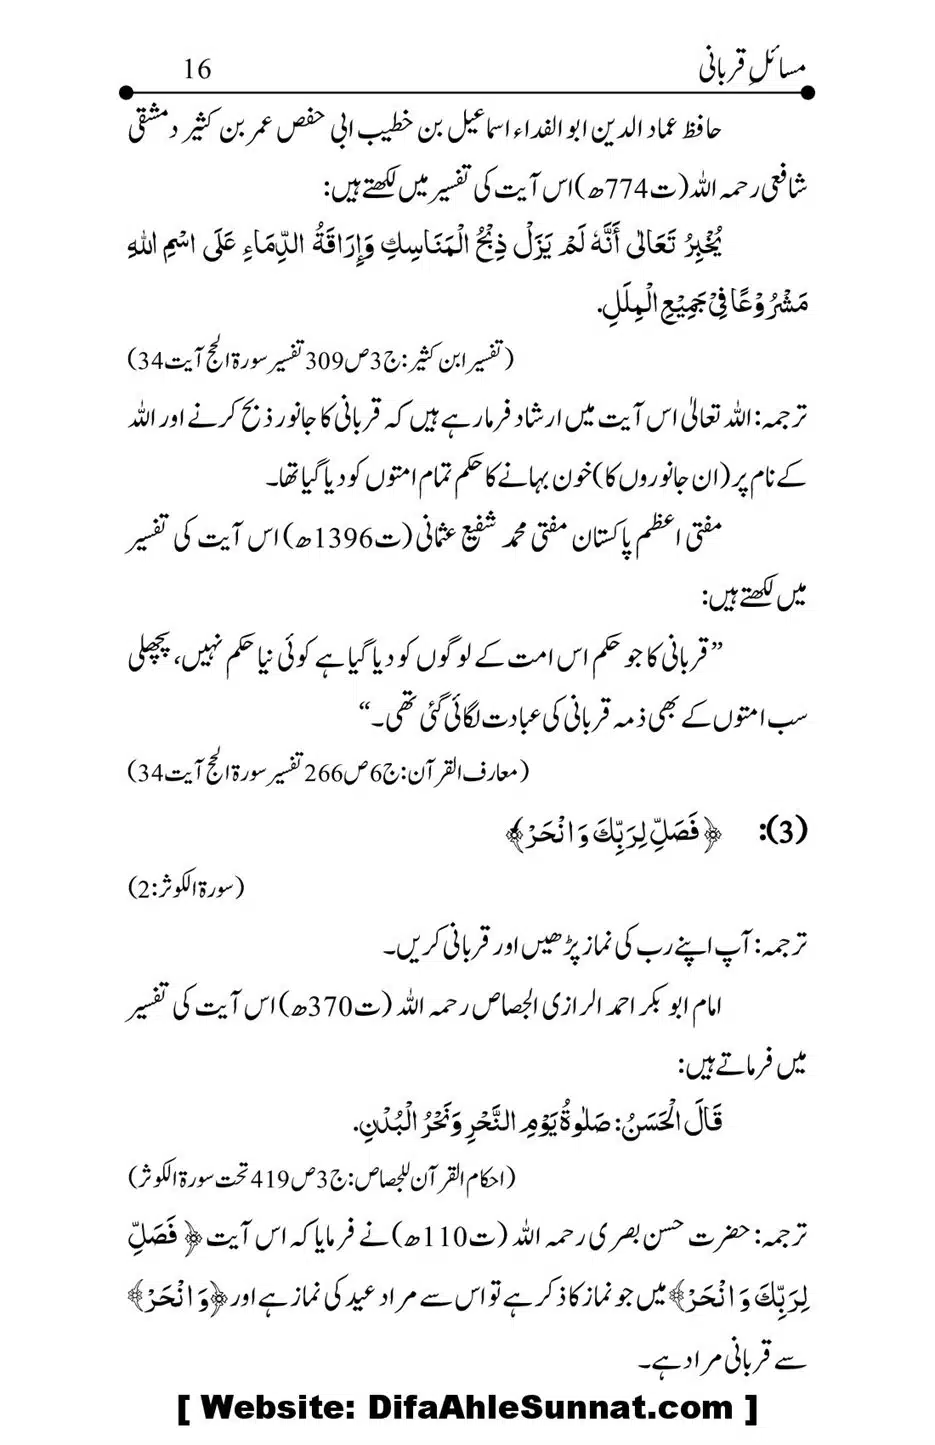 مسائلِ قربانی 16
حافظ عماد الدین ابو الفداء اسماعیل بن خطیب ابی حفص عمر بن کثیر دمشقی
شافعی رحمہ اللہ (ت774ھ) اس آیت کی تفسیر میں لکھتے ہیں:
يُخْبِرُ تَعَالٰى أَنَّهٗ لَمْ يَزَلْ ذِبْحُ الْمَنَاسِكِ وَإِرَاقَةُ الدِّمَاءِ عَلَى اسْمِ اللهِ
مَشْرُوْعًا فِيْ جَمِيْعِ الْمِلَلِ.
(تفسیر ابن کثیر: ج3 ص309 تفسیر سورۃ الحج آیت 34)
ترجمہ: اللہ تعالیٰ اس آیت میں ارشاد فرما رہے ہیں کہ قربانی کا جانور ذبح کرنے اور اللہ
کے نام پر (ان جانوروں کا) خون بہانے کا حکم تمام امتوں کو دیا گیا تھا۔
مفتی اعظم پاکستان مفتی محمد شفیع عثمانی (ت1396ھ) اس آیت کی تفسیر
میں لکھتے ہیں:
”قربانی کا جو حکم اس امت کے لوگوں کو دیا گیا ہے کوئی نیا حکم نہیں، پچھلی
سب امتوں کے بھی ذمہ قربانی کی عبادت لگائی گئی تھی۔“
(معارف القرآن: ج6 ص266 تفسیر سورۃ الحج آیت 34)
(3): ﴿فَصَلِّ لِرَبِّكَ وَانْحَرْ﴾
(سورۃ الکوثر: 2)
ترجمہ: آپ اپنے رب کی نماز پڑھیں اور قربانی کریں۔
امام ابو بکر احمد الرازی الجصاص رحمہ اللہ (ت370ھ) اس آیت کی تفسیر
میں فرماتے ہیں:
قَالَ الْحَسَنُ: صَلٰوةُ يَوْمِ النَّحْرِ وَنَحْرُ الْبُدْنِ.
(احکام القرآن للجصاص: ج3 ص419 تحت سورۃ الکوثر)
ترجمہ: حضرت حسن بصری رحمہ اللہ (ت110ھ) نے فرمایا کہ اس آیت ﴿فَصَلِّ
لِرَبِّكَ وَانْحَرْ﴾ میں جو نماز کا ذکر ہے تو اس سے مراد عید کی نماز ہے اور ﴿وَانْحَرْ﴾
سے قربانی مراد ہے۔
[ Website: DifaAhleSunnat.com ]